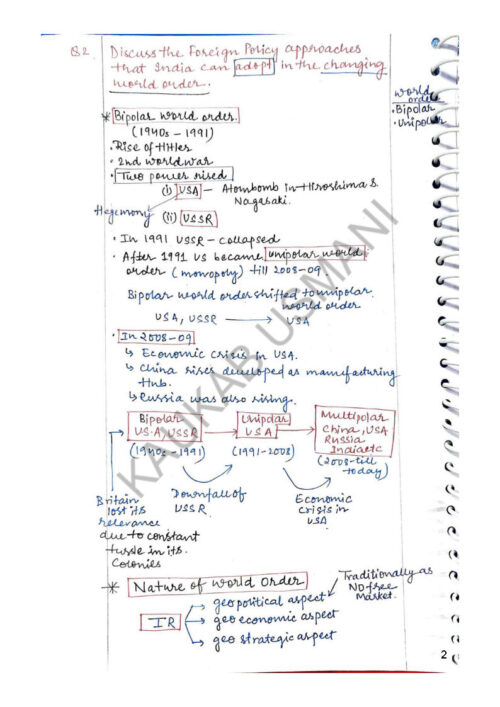 Q2. Discuss the Foreign Policy approaches
that India can adopt in the changing
world order.
world
order
• Bipolar
• Unipolar
* Bipolar world order.
(1940s - 1991)
• Rise of Hitler
• 2nd world war
• Two power rised
(i) USA - Atombomb in Hiroshima &
Nagasaki.
Hegemony
(ii) USSR
• In 1991 USSR - collapsed
• After 1991 US became unipolar world
order (monopoly) till 2008-09.
Bipolar world order shifted to unipolar
world order
USA, USSR → USA
• In 2008-09
↳ Economic crisis in USA.
↳ China rises developed as manufacturing
Hub.
↳ Russia was also rising.
Bipolar
USA, USSR
(1940s - 1991)
Unipolar
USA
(1991-2008)
Multipolar
China, USA
Russia
India etc
(2008-till
today)
Britain
lost its
relevance
due to constant
tussle in its
Colonies
Downfall of
USSR
Economic
crisis in
USA
* Nature of World Order
Traditionally as
No free
Market.
IR
→ geopolitical aspect
→ geo economic aspect
→ geo strategic aspect
2
KAUKAB USMANI